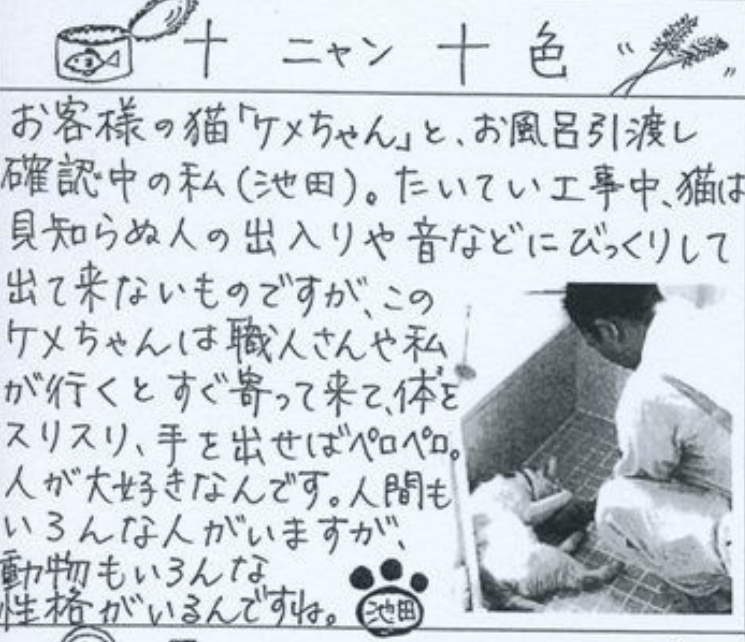 十 ニャン 十 色
お客様の猫「ケメちゃん」と、お風呂引渡し
確認中の私(池田)。たいてい工事中、猫は
見知らぬ人の出入りや音などにびっくりして
出て来ないものですが、この
ケメちゃんは職人さんや私
が行くとすぐ寄って来て、体を
スリスリ、手を出せばペロペロ。
人が大好きなんです。人間も
いろんな人がいますが、
動物もいろんな
性格がいるんですね。
池田